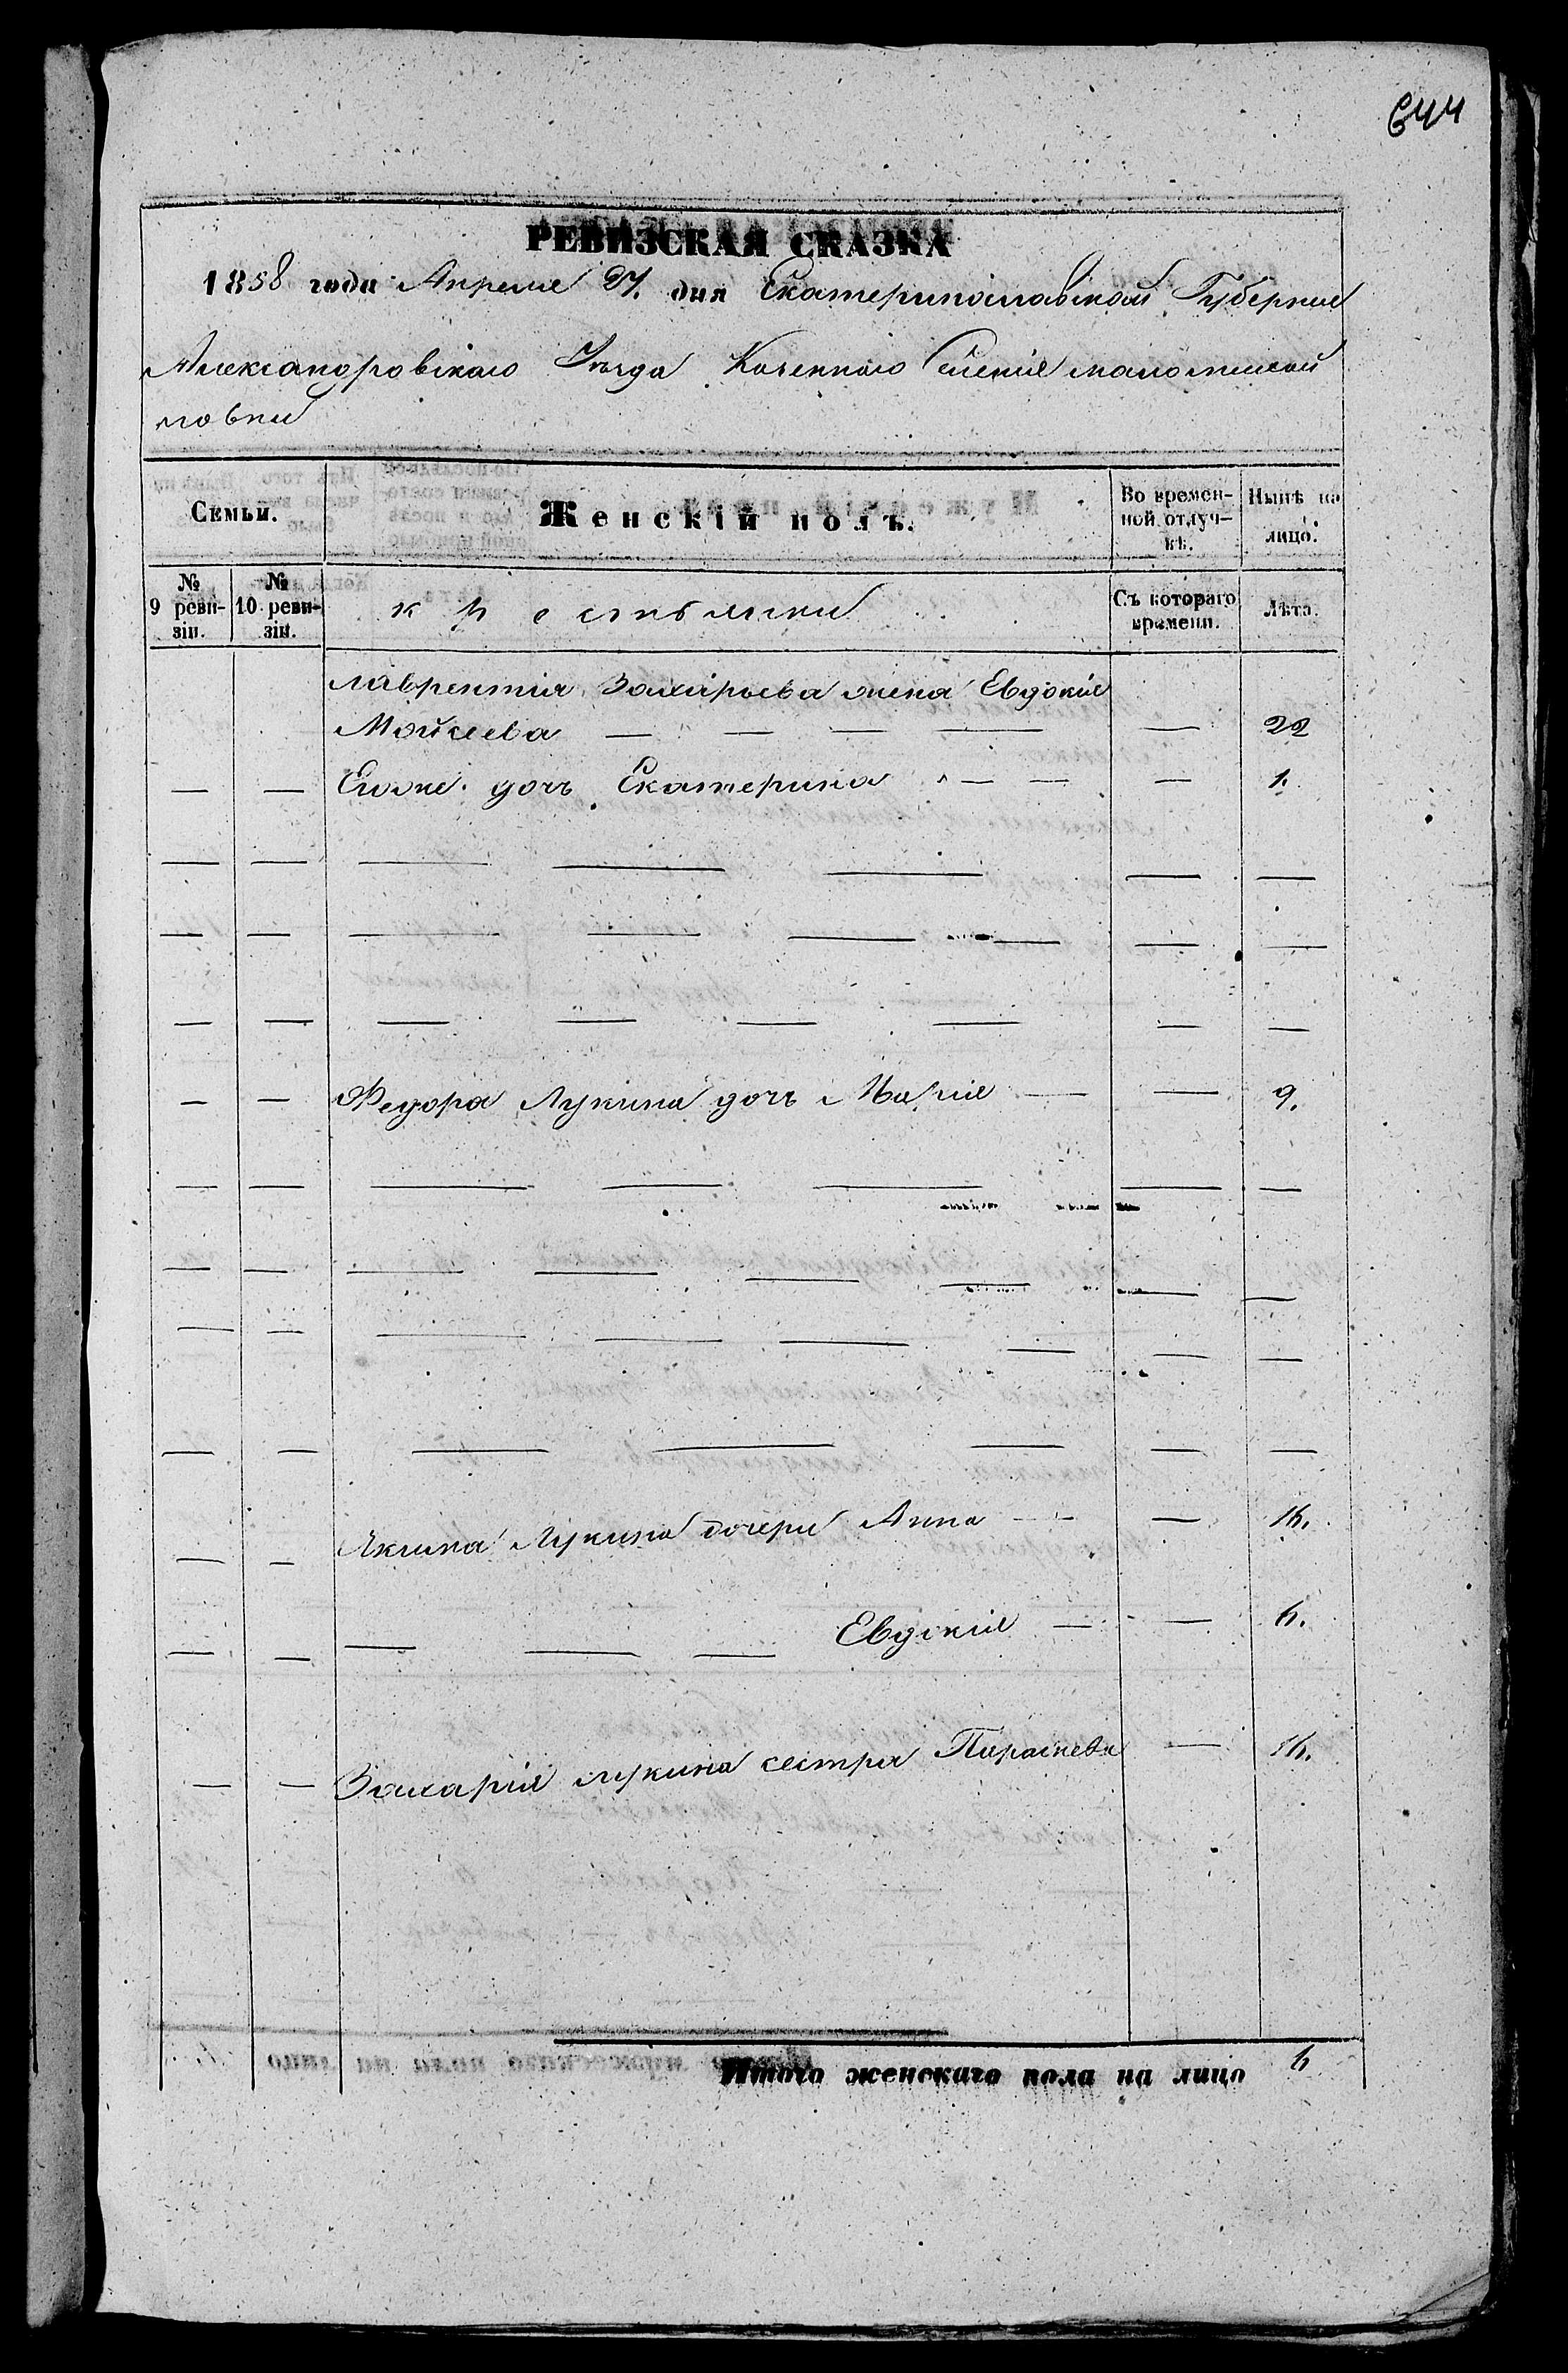 644
РЕВИЗСКАЯ СКАЗКА
1858 года Апреля 27. дня Екатеринославской Губернии
Александровскаго Уѣзда Казеннаго Селенія маломихай
ловки
Семьи.
Женскій полъ.
Во времен-
ной отлуч-
кѣ.
Нынѣ на
лицо.
№
9 реви-
зіи.
№
10 реви-
зіи.
крестьянки
Съ котораго
времени.
Лѣта.
Лаврентія Захарьева жена Евдокія
Мойсеева — — — — — 22
— — Егоже дочь Екатерина — — — 1.
— — Федора Лукина дочь Марія — — 9.
— — Якима Лукина дочери Анна — — 16.
— — — — — Евдокія — — 6.
— — Захарія Лукина сестра Параскева — 16.
Итого женскаго пола на лицо 6